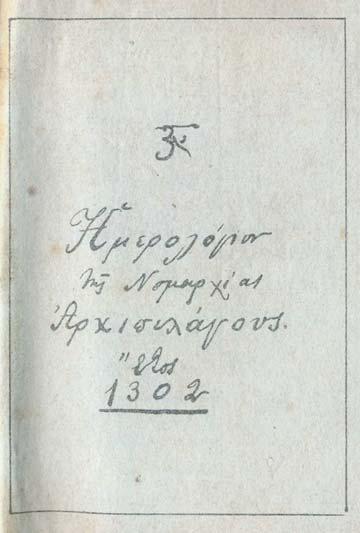 Ἡμερολόγιον
τῆς Νομαρχίας
Ἀρχιπελάγους.
Ἔτος
1302